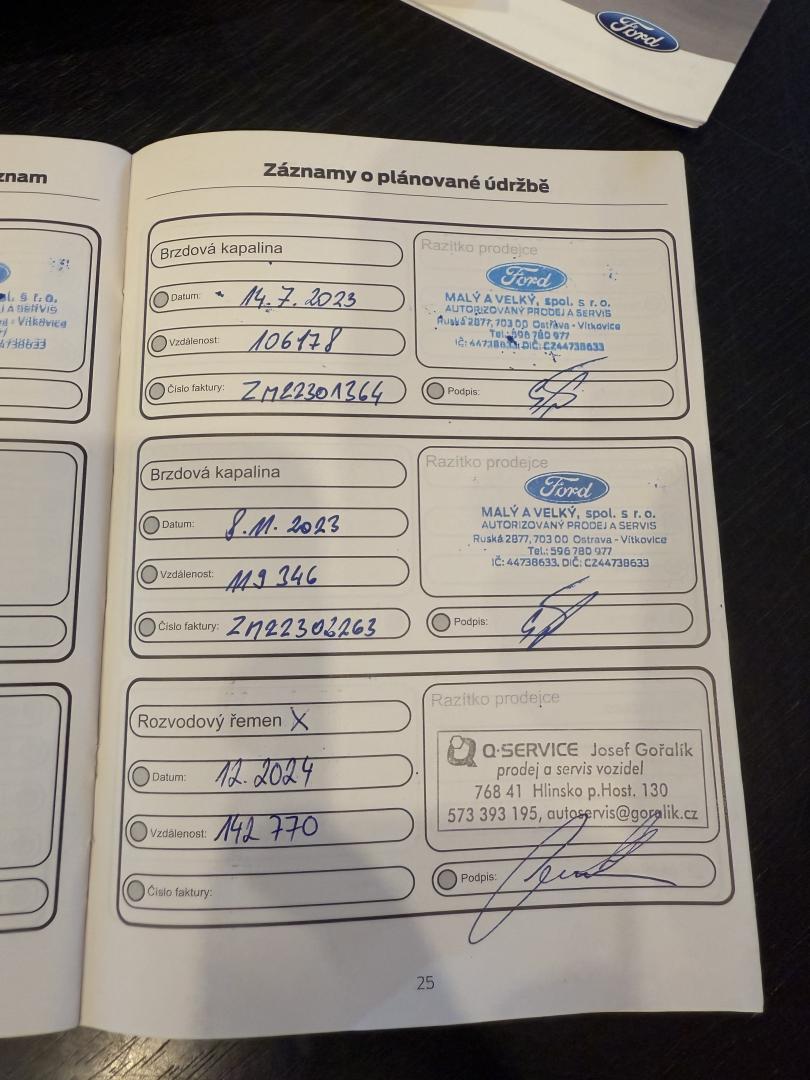 Ford
znam
Záznamy o plánované údržbě
Brzdová kapalina
Datum: 14.7.2023
Vzdálenost: 106178
Číslo faktury: ZM22301364
Razítko prodejce
Ford
MALÝ A VELKÝ, spol. s r.o.
AUTORIZOVANÝ PRODEJ A SERVIS
Ruská 2877, 703 00 Ostrava - Vítkovice
Tel.: 596 780 977
DIČ: CZ44738633
Podpis:
Brzdová kapalina
Datum: 8.11.2023
Vzdálenost: 119 346
Číslo faktury: ZM22302263
Razítko prodejce
Ford
MALÝ A VELKÝ, spol. s r.o.
AUTORIZOVANÝ PRODEJ A SERVIS
Ruská 2877, 703 00 Ostrava - Vítkovice
Tel.: 596 780 977
IČ: 44738633, DIČ: CZ44738633
Podpis:
Rozvodový řemen X
Datum: 12.2024
Vzdálenost: 142 770
Číslo faktury:
Razítko prodejce
Q-SERVICE Josef Gořalík
prodej a servis vozidel
768 41 Hlinsko p.Host. 130
573 393 195, autoservis@goralik.cz
Podpis:
25